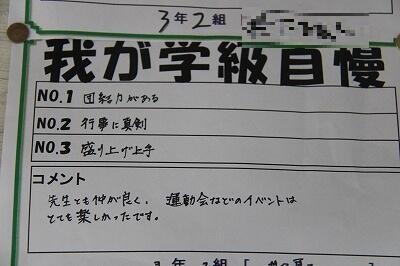 3年2組
我が学級自慢
NO.1 団結力がある
NO.2 行事に真剣
NO.3 盛り上げ上手
コメント
先生とも仲が良く、運動会などのイベントは
とても楽しかったです。